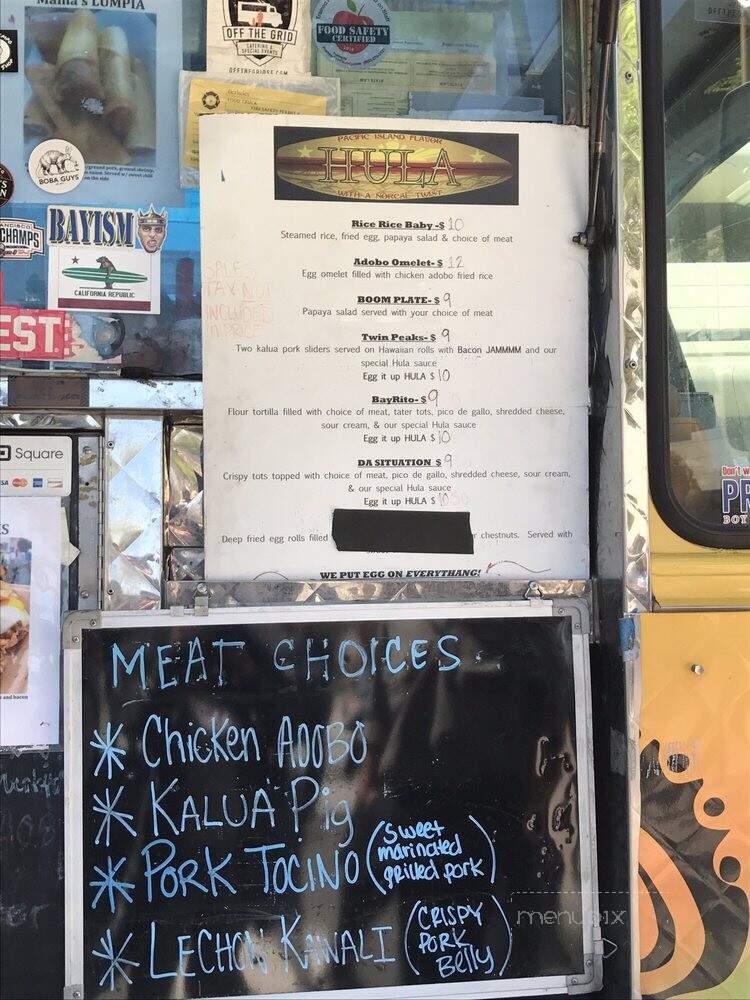 Mama's LUMPIA
OFF THE GRID
CATERING &
SPECIAL EVENTS
OFFTHEGRIDSF.COM
FOOD SAFETY
CERTIFIED
BOBA GUYS
BAYISM
CHAMPS
CALIFORNIA REPUBLIC
EST
Square
PACIFIC ISLAND FLAVOR
HULA
WITH A NORCAL TWIST
Rice Rice Baby -$ 10
Steamed rice, fried egg, papaya salad & choice of meat
Adobo Omelet- $ 12
Egg omelet filled with chicken adobo fried rice
SALES
TAX NOT
INCLUDED
IN PRICE
BOOM PLATE- $ 9
Papaya salad served with your choice of meat
Twin Peaks- $ 9
Two kalua pork sliders served on Hawaiian rolls with Bacon JAMMMM and our
special Hula sauce
Egg it up HULA $ 10
BayRito- $ 9
Flour tortilla filled with choice of meat, tater tots, pico de gallo, shredded cheese,
sour cream, & our special Hula sauce
Egg it up HULA $ 10
DA SITUATION $ 9
Crispy tots topped with choice of meat, pico de gallo, shredded cheese, sour cream,
& our special Hula sauce
Egg it up HULA $ 10
Deep fried egg rolls filled chestnuts. Served with
WE PUT EGG ON EVERYTHANG!
MEAT CHOICES
* Chicken ADOBO
* KALUA Pig
* PORK TOCINO (sweet
marinated
grilled pork)
* LECHON KAWALI (CRISPY
PORK
Belly)
and bacon
menupix